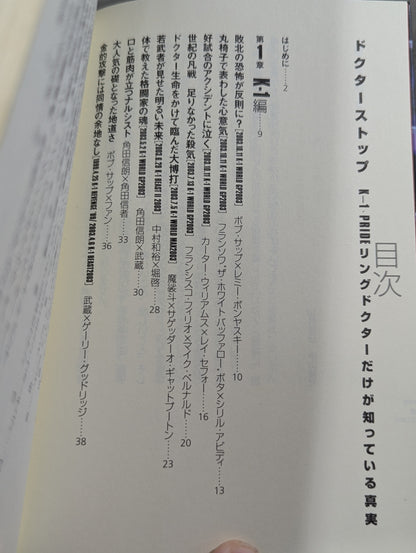 ドクターストップ K-1・PRIDEリングドクターだけが知っている真実
目次
はじめに……2
第1章 K-1編……9
敗北の恐怖が反則に？[2003.10.11 K-1 WORLD GP2003] ボブ・サップ×レミー・ボンヤスキー……10
丸椅子で表わした心意気[2003.10.11 K-1 WORLD GP2003] フランソワ・ザ・ホワイトバッファロー・ボタ×シリル・アビディ……13
好試合のアクシデントに泣く[2003.10.11 K-1 WORLD GP2003] カーター・ウィリアムス×レイ・セフォー……16
世紀の凡戦 足りなかった殺気[2003.7.13 K-1 WORLD GP2003] フランシスコ・フィリォ×マイク・ベルナルド……20
ドクター生命をかけて臨んだ大博打[2003.7.5 K-1 WORLD MAX2003] 魔裟斗×サゲッダーオ・ギャットプートン……23
若武者が見せた明るい未来[2003.6.29 K-1 BEAST II 2003] 中村和裕×堀啓……28
体で教えた格闘家の魂[2003.5.2 K-1 WORLD GP2003] 角田信朗×武蔵……30
口と筋肉が立つナルシスト 角田信朗×角田信者……33
大人気の礎となった地道さ ボブ・サップ×ファン……36
金的攻撃には同情の余地なし[1999.4.25 K-1 REVENGE '99/2003.4.6 K-1 BEAST2003] 武蔵×ゲーリー・グッドリッジ……38